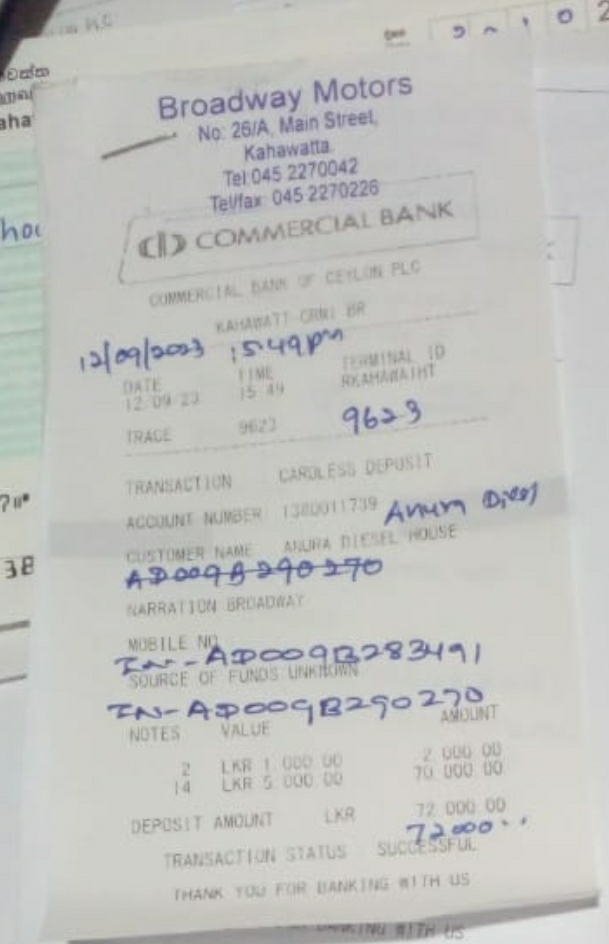 Broadway Motors
No: 26/A, Main Street,
Kahawatta.
Tel:045 2270042
Tel/fax: 045 2270226
COMMERCIAL BANK
COMMERCIAL BANK OF CEYLON PLC
KAHAWATT CRM1 BR
12/09/2023 15:49pm
DATE TIME TERMINAL ID
12 09 23 15 49 RKAHAWATHT
TRACE 9623 9623
TRANSACTION CARDLESS DEPOSIT
ACCOUNT NUMBER 1380011739 Anura Diesel
CUSTOMER NAME ANURA DIESEL HOUSE
AD009B290270
NARRATION BROADWAY
MOBILE NO
IN-AD009B283491
SOURCE OF FUNDS UNKNOWN
IN-AD009B290270
NOTES VALUE AMOUNT
2 LKR 1 000.00 2 000 00
14 LKR 5 000.00 70 000 00
DEPOSIT AMOUNT LKR 72 000 00
72000..
TRANSACTION STATUS SUCCESSFUL
THANK YOU FOR BANKING WITH US
BANKING WITH US
38